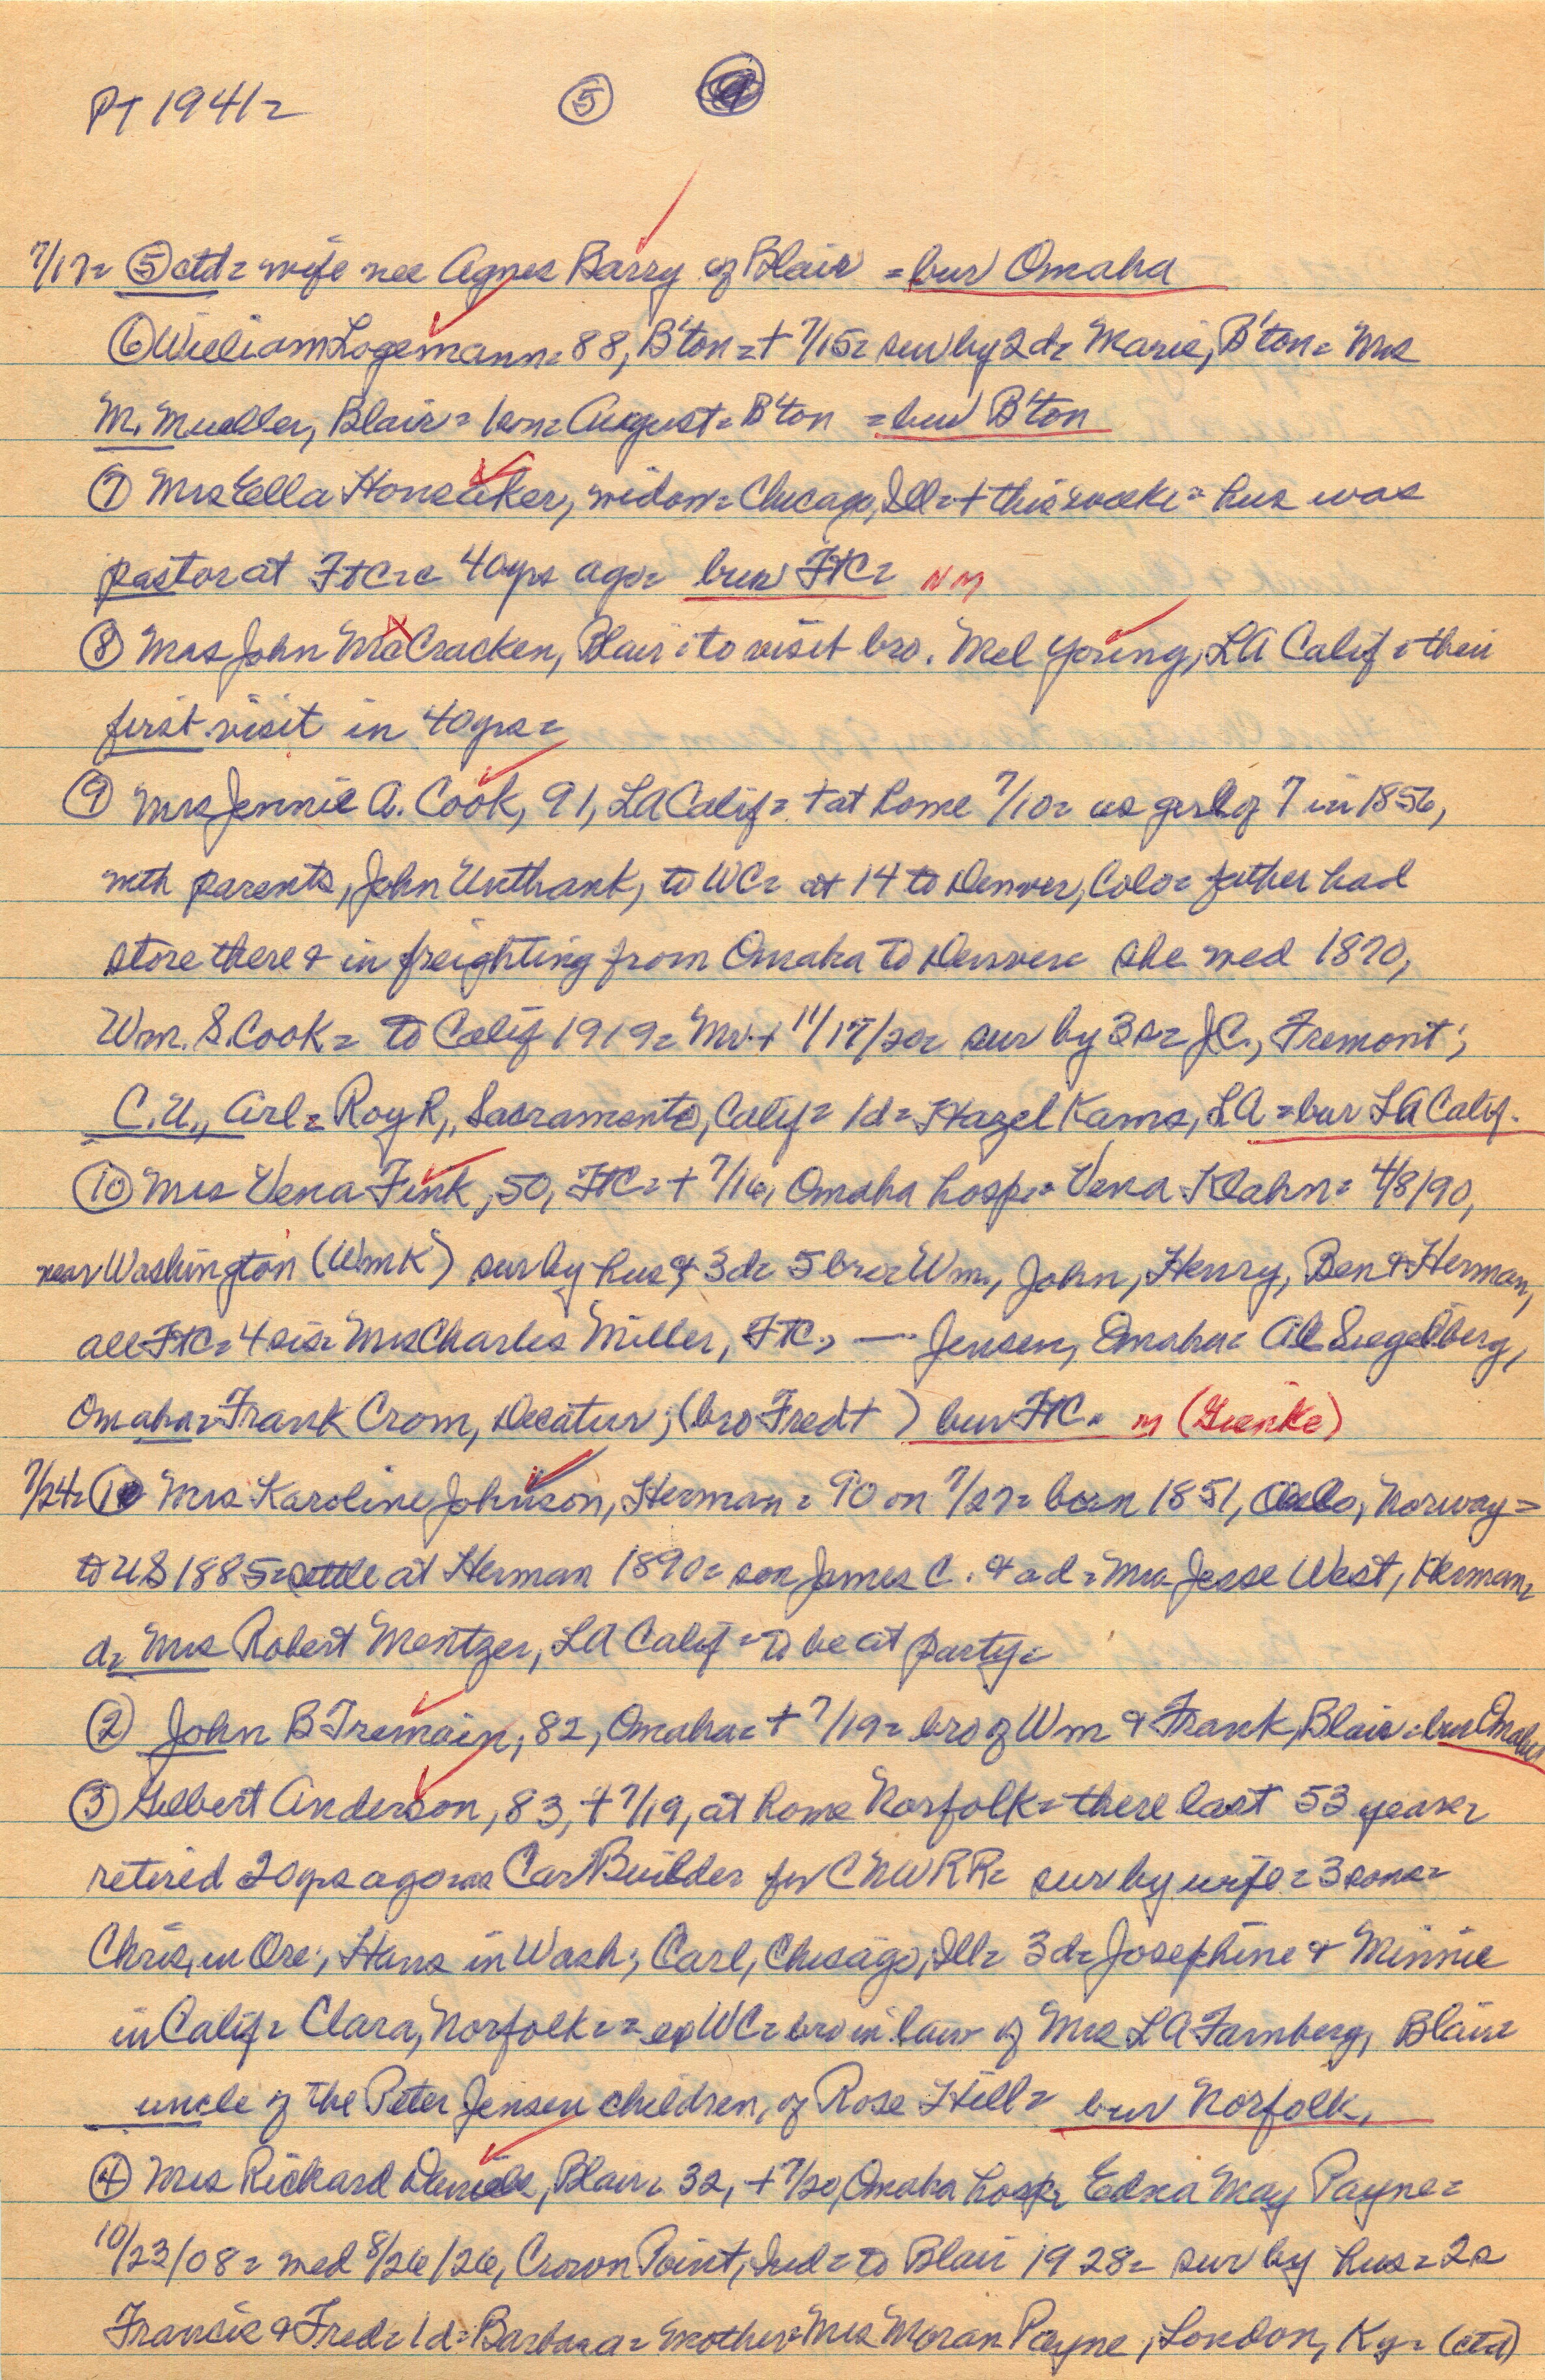 PT 1941=
5
7/17= 5 ctd= wife nee Agnes Barry of Blair =bur Omaha
6 William Logemann= 88, B'ton =+ 7/15= sur by 2d= Marie, B'ton= Mrs
M. Mueller, Blair= 1 son= August= B'ton =bur B'ton
7 Mrs Ella Honsaker, widow= Chicago, Ill=+ this week= hus was
pastor at FtC=c 40yrs ago= bur FtC= NM
8 Mrs John McCracken, Blair= to visit bro. Mel Young, LA Calif= their
first visit in 40yrs=
9 Mrs Jennie A. Cook, 91, LA Calif= + at home 7/10= as girl of 7 in 1856,
with parents, John Unthank, to WC= at 14 to Denver, Colo= father had
store there & in freighting from Omaha to Denver= she wed 1870,
Wm. S. Cook= to Calif 1919= Mr.+ 11/17/20= sur by 3s= J.C., Fremont;
C.U., Arl= Roy R., Sacramento, Calif= 1d= Hazel Karns, LA =bur LA Calif.
10 Mrs Vena Fink, 50, FtC=+ 7/16, Omaha hosp= Vena Klahn= 4/8/90,
near Washington (WmK) sur by hus & 3d= 5 bro= Wm., John, Henry, Ben & Herman,
all FtC= 4 sis= Mrs Charles Miller, FtC, — Jensen, Omaha= Al Suegelberg,
Omaha= Frank Crom, Decatur; (bro Fred+ ) bur FtC= m (Gienke)
7/24= 1 Mrs Karoline Johnson, Herman= 90 on 7/27= born 1851, Oslo, Norway=
to US 1885= settle at Herman 1890= son James C. & a d= Mrs Jesse West, Herman=
d= Mrs Robert Mentzer, LA Calif= to be at party=
2 John B Tremain, 82, Omaha= + 7/19= bro of Wm & Frank, Blair= bur Omaha
3 Gilbert Anderson, 83, + 7/19, at home Norfolk= there last 53 years=
retired 20yrs ago as Car Builder for CNWRR= sur by wife= 3 sons=
Chris, in Ore; Hans in Wash; Carl, Chicago, Ill= 3d= Josephine & Minnie
in Calif= Clara, Norfolk== exWC= bro in law of Mrs LA Farnberg, Blair=
uncle of the Peter Jensen children, of Rose Hill= bur Norfolk,
4 Mrs Richard Daniels, Blair= 32, + 7/20, Omaha hosp= Edna May Payne=
10/23/08= wed 8/26/26, Crown Point, Ind= to Blair 1928= sur by hus= 2s
Francis & Fred= 1d= Barbara= mother= Mrs Moran Payne, London, Ky= (ctd)